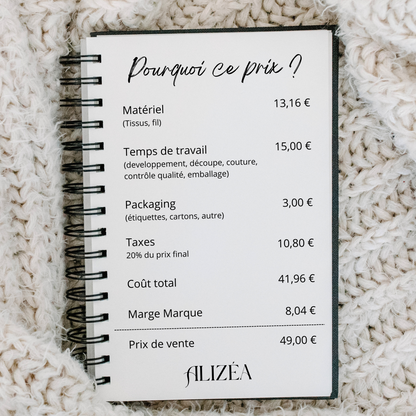 Pourquoi ce prix ?
Matériel 13,16 €
(Tissus, fil)
Temps de travail 15,00 €
(developpement, découpe, couture,
contrôle qualité, emballage)
Packaging 3,00 €
(étiquettes, cartons, autre)
Taxes 10,80 €
20% du prix final
Coût total 41,96 €
Marge Marque 8,04 €
Prix de vente 49,00 €
ALIZÉA